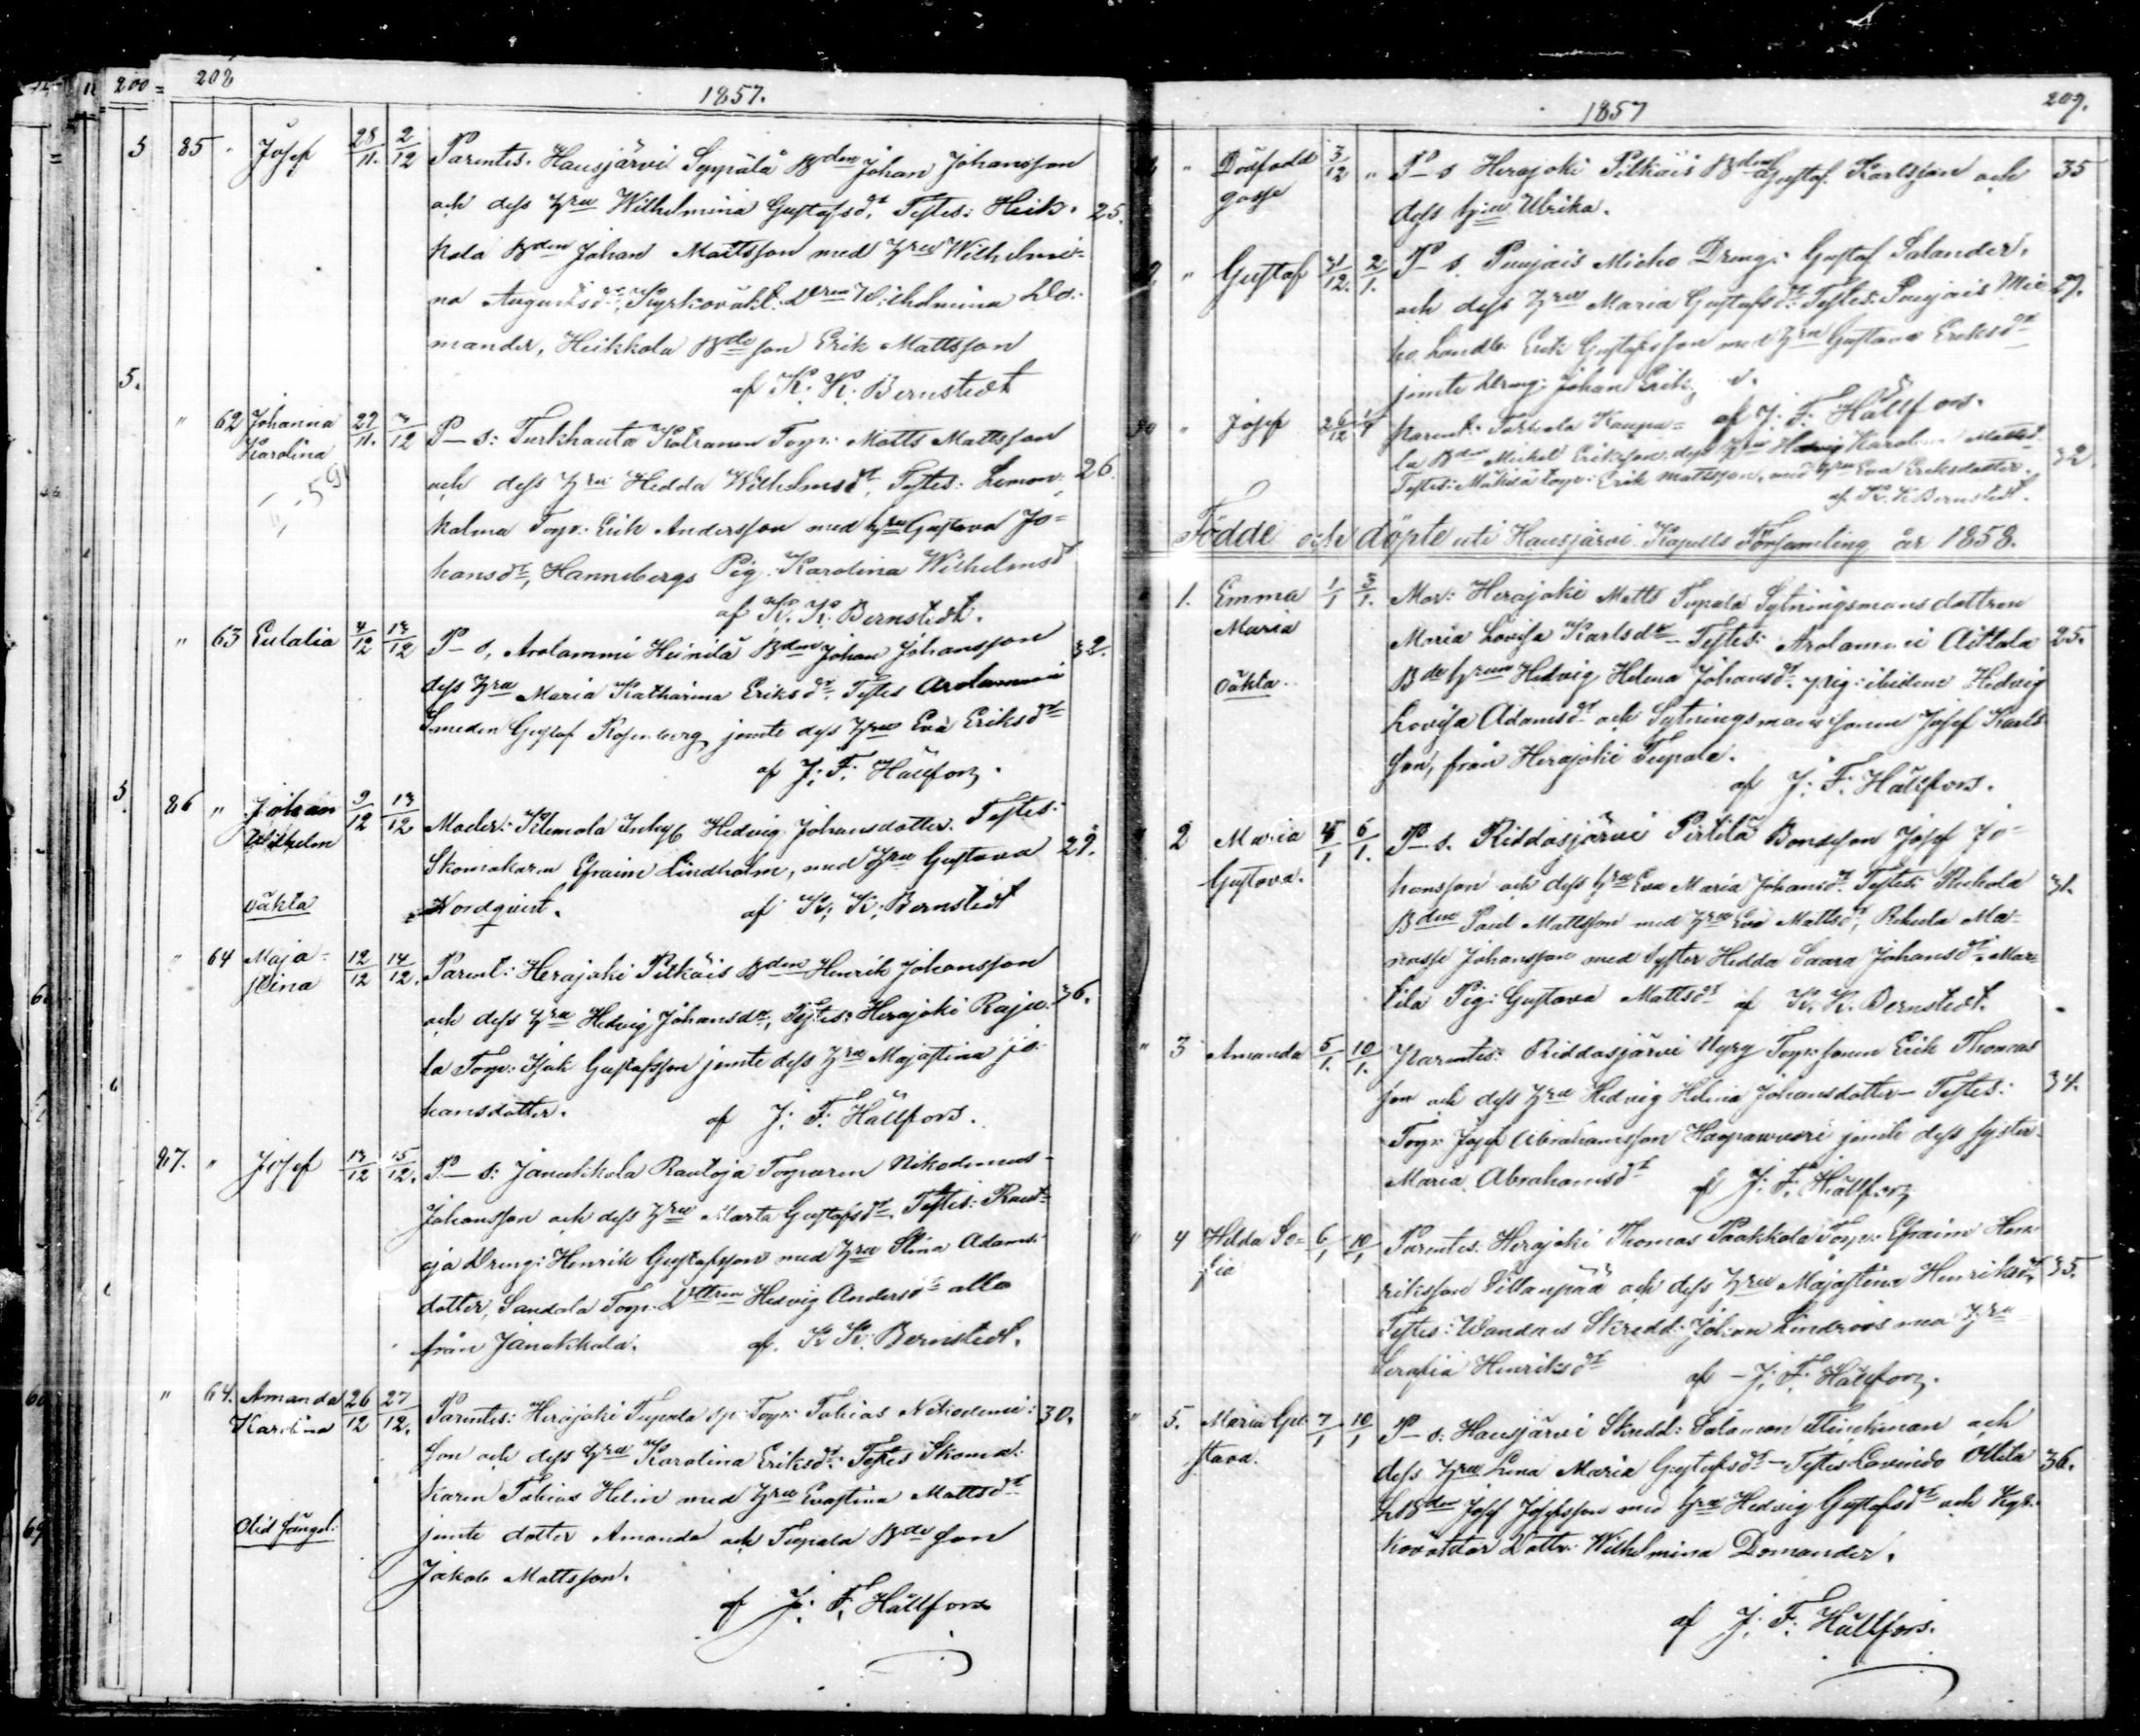 200 208
1857.
5 85 " Josef 28/11. 2/12 Parentes. Hausjärvi Seppälä Bden Johan Johansson
och dess hru Wilhelmina Gustafsdr, Testes: Heik- 25.
kola Bden Johan Mattsson med hru Wilhelmi-
na Augustsdr, Wilhelmina Do-
mander, Heikkola Bde son Erik Mattsson
af K. K. Bernstedt
5.
" 62 Johanna Karolina 27/11. 3/12 P-s: Turkhauta Torp: Matts Mattsson
och dess hru Hedda Wilhelmsdr, Testes: Lemon- 26.
kalma Torp: Erik Andersson med hru Gustava Jo-
hansdr, Hannebergs Pig. Karolina Wilhelmsdr
af K. K. Bernstedt.
" 63 Eulalia 4/12 13/12 P-s, Arolammi Heinilä Bden Johan Johansson 32.
dess hru Maria Katharina Eriksdr, Testes Arolammi
Smeden Gustaf Rosenberg jemte dess hru Eva Eriksdr
af J. F. Hällfors.
5. 86 " Johan Wilhelm 9/12 13/12 Moder: Kilemola Inhys Hedvig Johansdotter. Testes:
Skomakaren Efraim Lindholm, med hru Gustava 29.
oäkta Nordqvist. af K. K. Bernstedt
" 64 Maja-stina 12/12 14/12. Parent: Herajoki Pitkäis Bden Henrik Johansson
och dess hru Hedvig Johansdr, Testes: Herajoki Raju- 36.
la Torp: Isak Gustafsson jemte dess hru Majastina Jo-
hansdotter. af J. F. Hällfors.
87. " Josef 13/12 15/12. P-s: Janakkala Rautoja Torparen Nikodemus
Johansson och dess hru Marta Gustafsdr, Testes: Raut-
oja Dreng: Henrik Gustafsson med hru Stina Adams-
dotter, Sandala Torp. Dttren Hedvig Andersdr alla
från Janakkala. af. K. K. Bernstedt.
" 64. Amanda Karolina 26/12 27/12. Parentes: Herajoki Tupala sp: Torp: Tobias Nikodemi- 30.
son och dess hru Karolina Eriksdr: Testes Skoma-
karen Tobias Helin med hru Evastina Mattsdr
jemte dotter Amanda och Tupala Bde son
Jakob Mattsson.
af J. F. Hällfors

1857 209.
" Dödfödd gosse 3/12 " P-s Herajoki Pitkäis Bden Gustaf Karlsson och 35
dess hru Ulrika.
" Gustaf 31/12. 2/1. P-s. Puujais Micko Dreng: Gustaf Salander,
och dess hru Maria Gustafsdr. Testes: Puujais Mic- 29.
ko Landb: Erik Gustafsson med hru Gustava Eriksdr
jemte Dreng: Johan Erik
af J. F. Hällfors.
" Josef 26/12 Parent: Kaupi-
la Bden Michel Eriksson, dess hru Hedvig Karolina Mattsd. 32.
Testes: Torp: Erik Mattsson, med hru Eva Eriksdotter.
af K. K. Bernstedt.
Födde och döpte uti Hausjärvi Kapells Församling år 1858.
1. Emma Maria 1/1 3/1. Mor: Herajoki Matts Tupala Sytningsmansdottren
Maria Lovisa Karlsdr - Testes: Arolammi Aittala 25.
oäkta Bde hrun Hedvig Helena Johansdr, pig: ibidem Hedvig
Lovisa Adamsdr och Sytningsmans sonen Josef Karls-
son, från Herajoki Tupala.
af J. F. Hällfors.
2 Maria Gustava. 5/1 6/1. P-s. Riddasjärvi Pirtilä Bondeson Josef Jo-
hansson och dess hru Eva Maria Johansdr. Testes: 31.
Bden Paul Mattsson med hru Eva Mattsdr, Rekula Ma-
nasse Johansson med Syster Hedda Saara Johansdr, Mar-
tila Pig: Gustava Mattsdr af K. K. Bernstedt.
" 3 Amanda 5/1. 10/1. Parentes: Riddasjärvi Nyry Torp: sonen Erik Thomas
son och dess hru Hedvig Helena Johansdotter - Testes: 34.
Torp: Josef Abrahamsson Haapavuori jemte dess syster
Maria Abrahamsdr af J. F. Hällfors
" 4 Hilda So-fia 6/1 10/1 Parentes: Herajoki Thomas Paakkola Torp: Efraim Hen-
riksson Sillanpää och dess hru Majastina Henriksdr, 35.
Testes: Skredd: Johan Lindroos med hru
Serafia Henriksdr af J. F. Hällfors.
" 5. Maria Gu-stava. 7/1 10/1 P-s: Hausjärvi Skredd: Salomon Flinckman och
dess hru Lena Maria Gustafsdr - Testes Ollila 36.
Bden Josef Josefsson med hru Hedvig Gustafsdr och Kyr-
koväktar Dottr: Wilhelmina Domander.
af J. F. Hällfors.